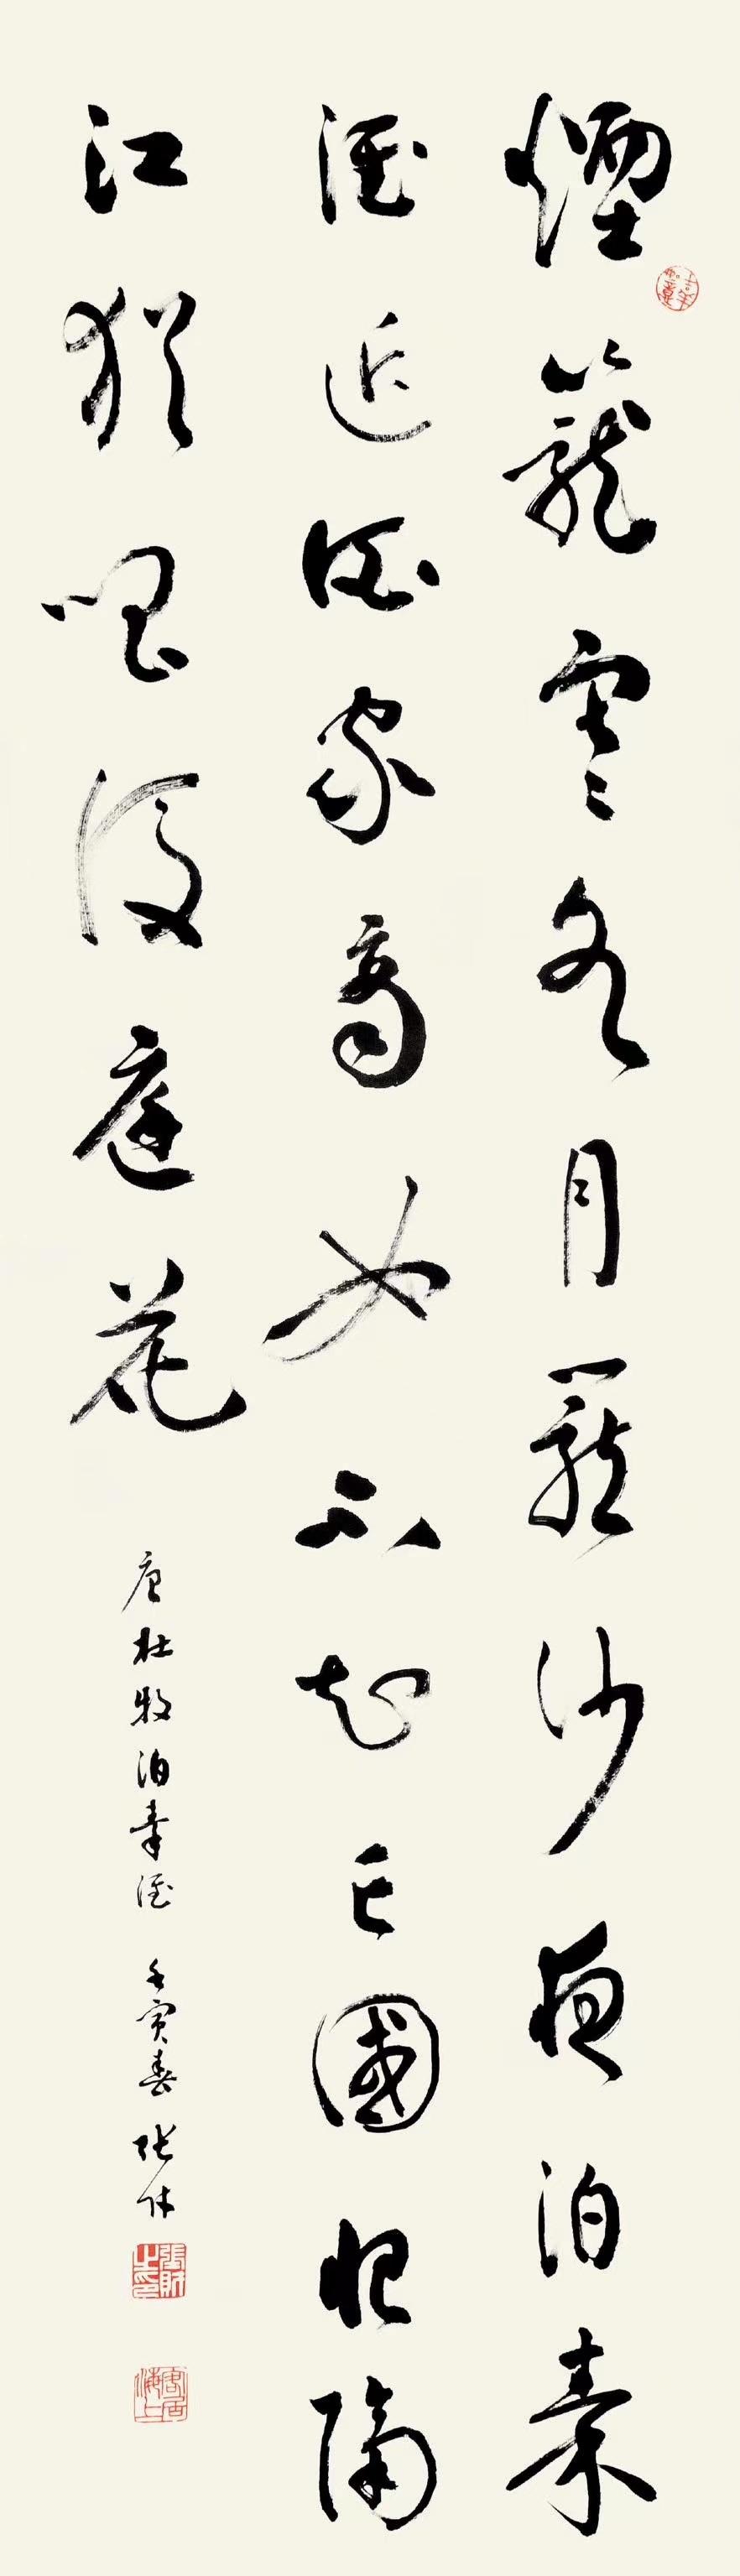 煙籠寒水月籠沙夜泊秦
淮近酒家商女不知亡國恨隔
江猶唱後庭花
唐杜牧泊秦淮 壬寅春 張財
張財之印
居海上